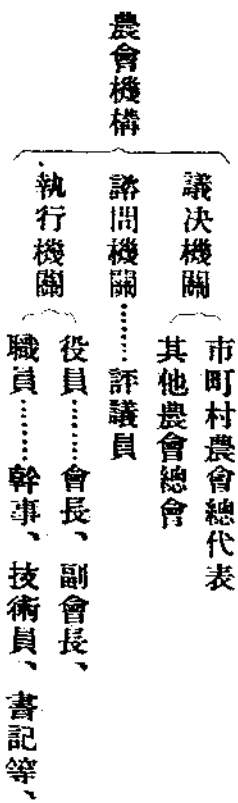 農會機構
議決機關
市町村農會總代表
其他農會總會
諮問機關………評議員
執行機關
役員………會長、副會長、
職員………幹事、技術員、書記等、